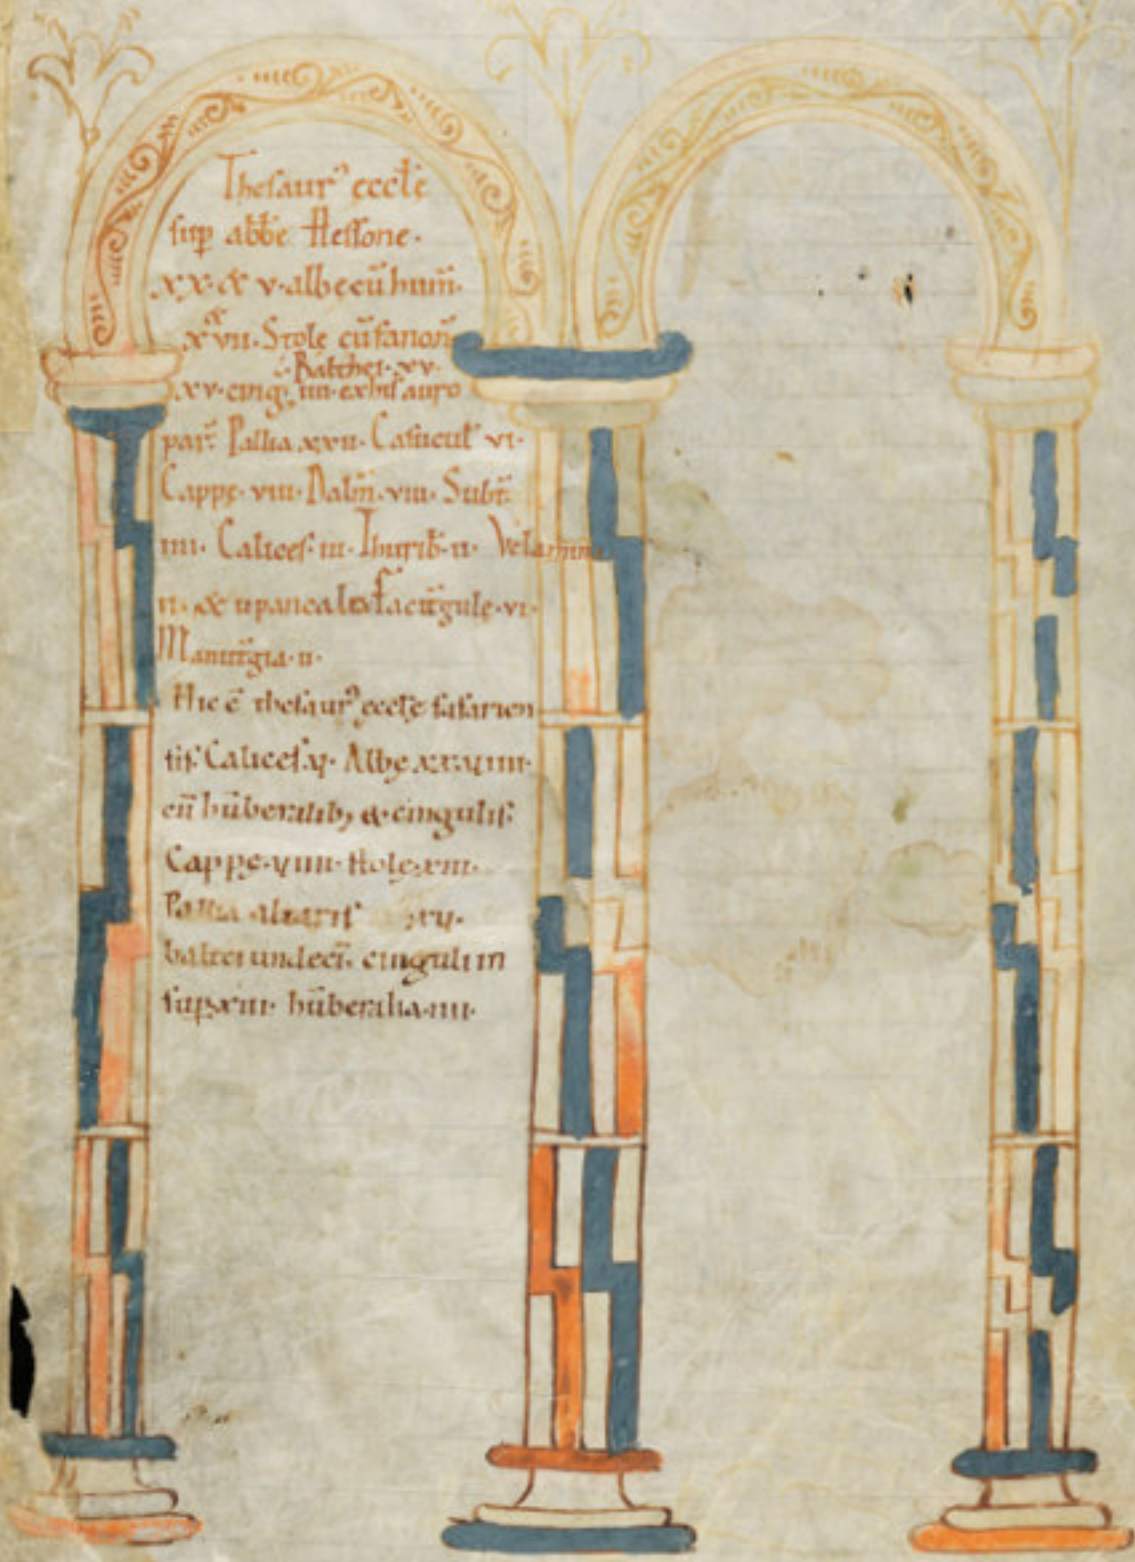 Thesaur᾽ eccłe
sup abb̄e Hessone·
xx·& v·albe cū hum̄·
& xvii·Stole cū fanoñ
Balthei·xv·
xv·cing· iiii·ex his auro
par̄· Pallia xxii· Casucul̄ vi·
Cappe·viii·Dalm̄·viii·Subt̄·
iiii· Calices·iii·Thurib̄·ii· Velamina
ii·& ii pancalia facit̄gule·vi·
Manut̄gia·ii·
Hic ē thesaur᾽ eccłe sasarien
tis· Calices· Albe
cū hūberalib; & cingulis·
Cappe· Stole·xiii·
Pallia altaris xvi·
baltei undeci· cinguli
sup xiii· hūberalia·iiii·